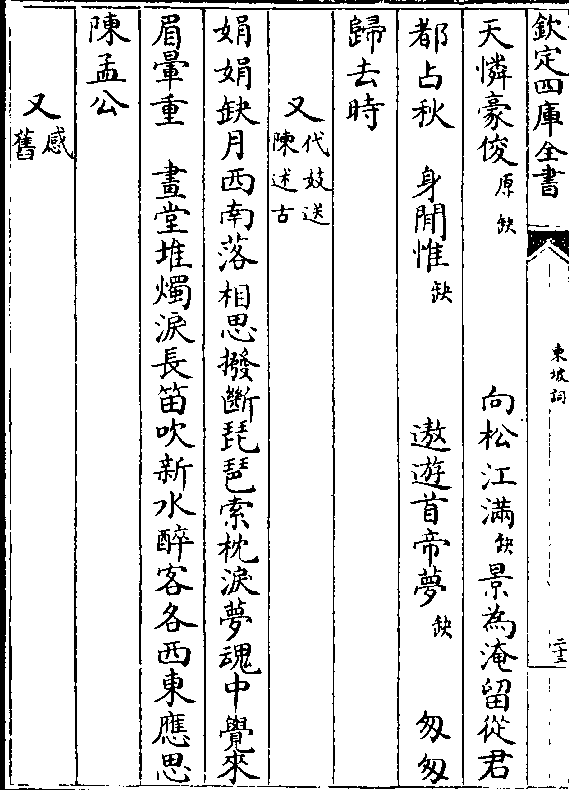 欽定四庫全書
東坡詞
二十三
天憐豪俊原缺 向松江滿缺景為淹留從君
都占秋 身閒惟缺 遨遊首帝夢缺 匆匆
歸去時
又代妓送陳述古
娟娟缺月西南落相思撥斷琵琶索枕淚夢魂中覺來
眉暈重 畫堂堆燭淚長笛吹新水醉客各西東應思
陳孟公
又感舊